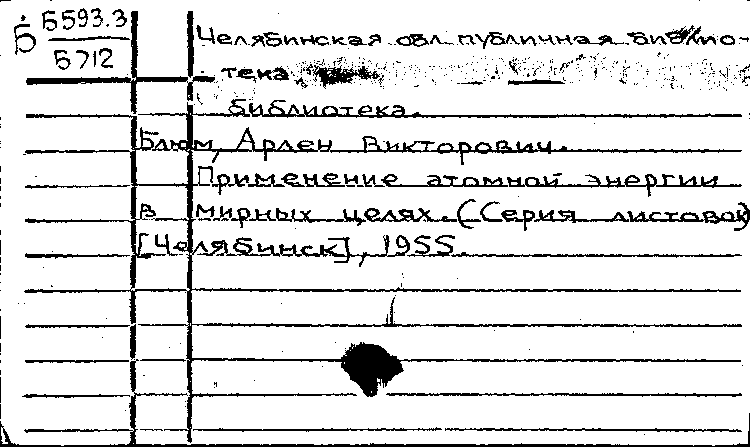 Б Б593.3
Б712
Челябинская обл. публичная библио-
тека
библиотека.
Блюм, Арлен Викторович.
Применение атомной энергии
в мирных целях. (Серия листовок)
[Челябинск], 1955.